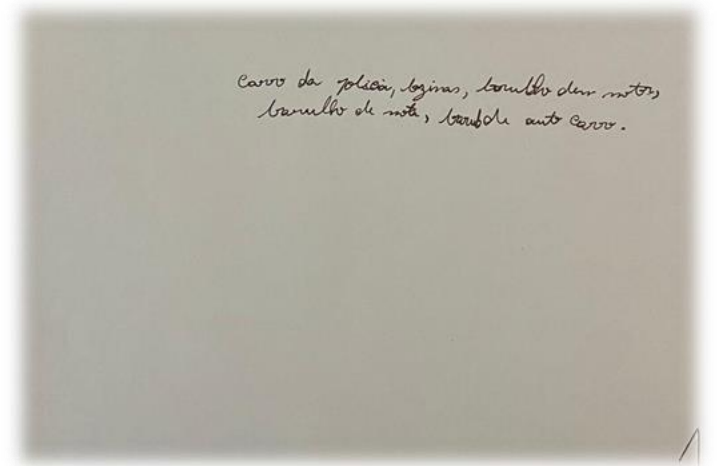 Carro da policia, bzinas, barulho dum motor,
barulho de mota, barulho de auto carro.